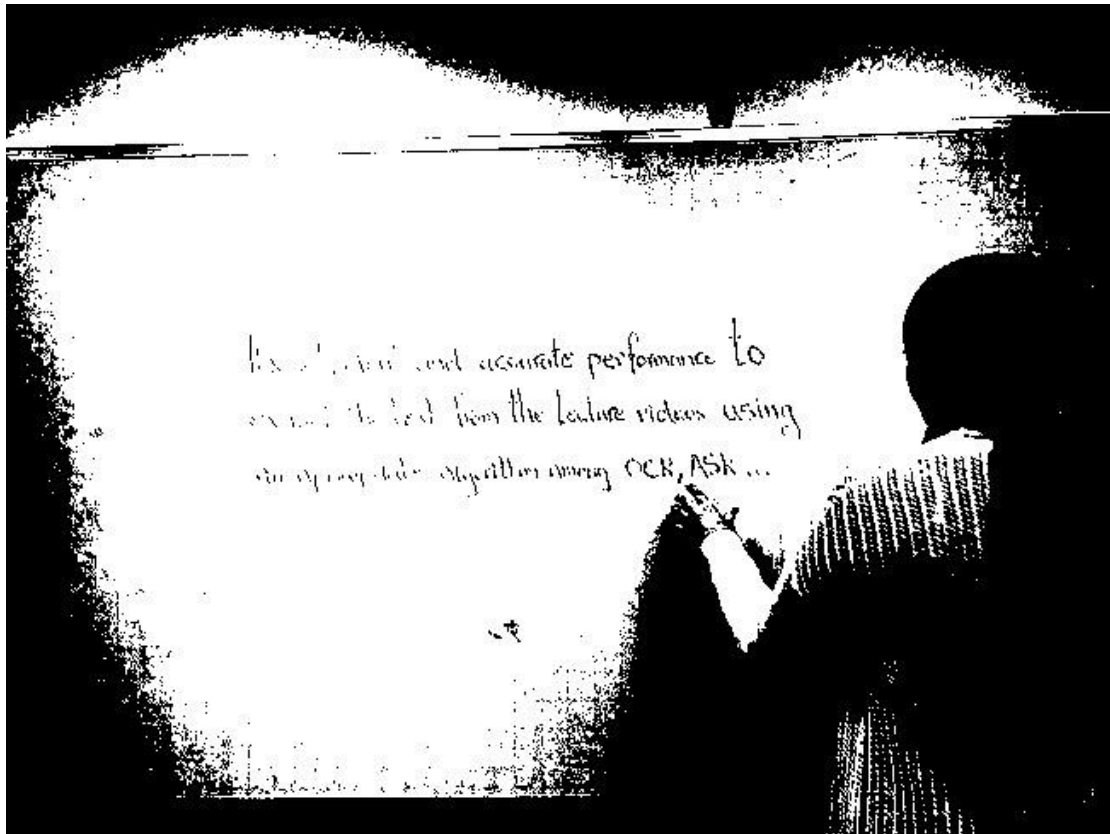 and accurate performance to
the text from the lecture videos using
algorithm among OCR, ASR...